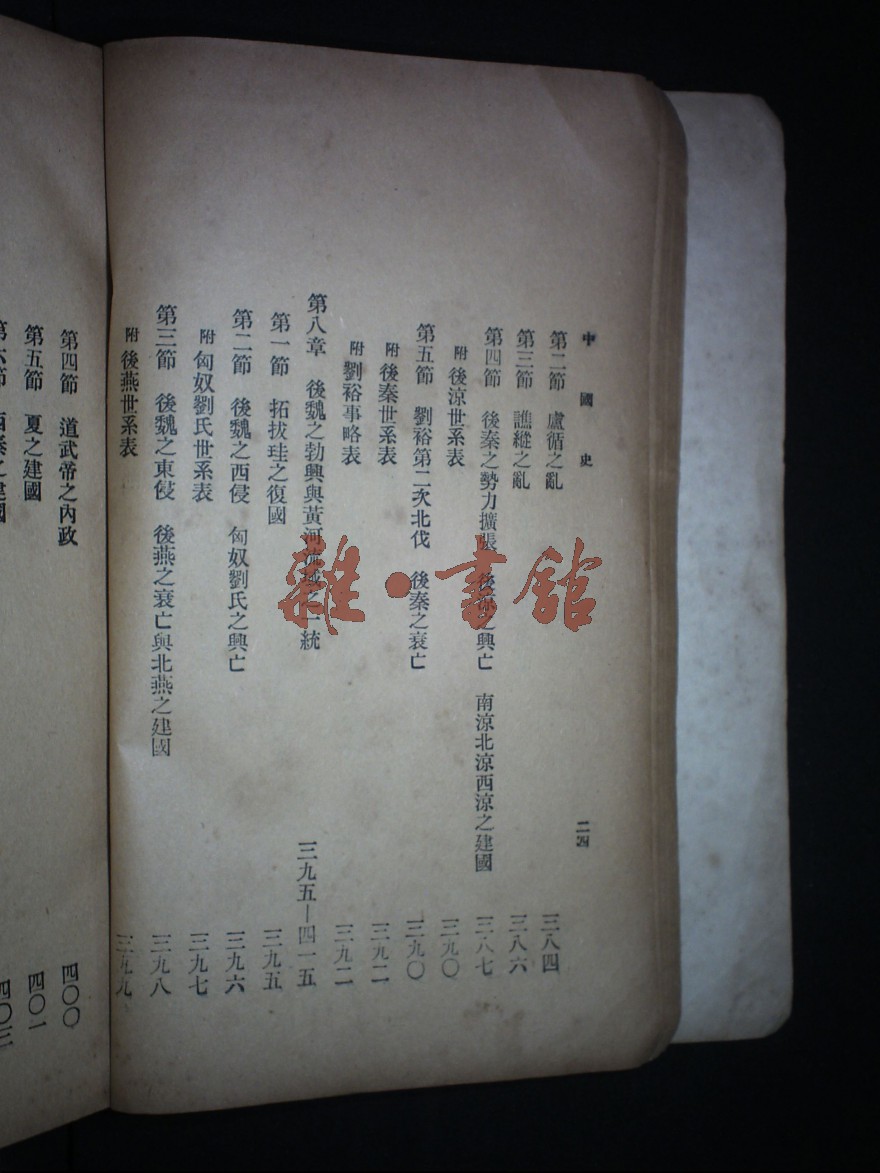 中國史
二四
第二節 盧循之亂 三八四
第三節 譙縱之亂 三八六
第四節 後秦之勢力擴張 後涼之興亡 南涼北涼西涼之建國 三八七
附 後涼世系表 三九〇
第五節 劉裕第二次北伐 後秦之衰亡 三九〇
附 後秦世系表 三九二
附 劉裕事略表 三九二
第八章 後魏之勃興與黃河流域之一統 三九五—四一五
第一節 拓拔珪之復國 三九五
第二節 後魏之西侵 匈奴劉氏之興亡 三九六
附 匈奴劉氏世系表 三九七
第三節 後魏之東侵 後燕之衰亡與北燕之建國 三九八
附 後燕世系表 三九九
第四節 道武帝之內政 四〇〇
第五節 夏之建國 四〇一
第六節 西秦之建國
雜·書館